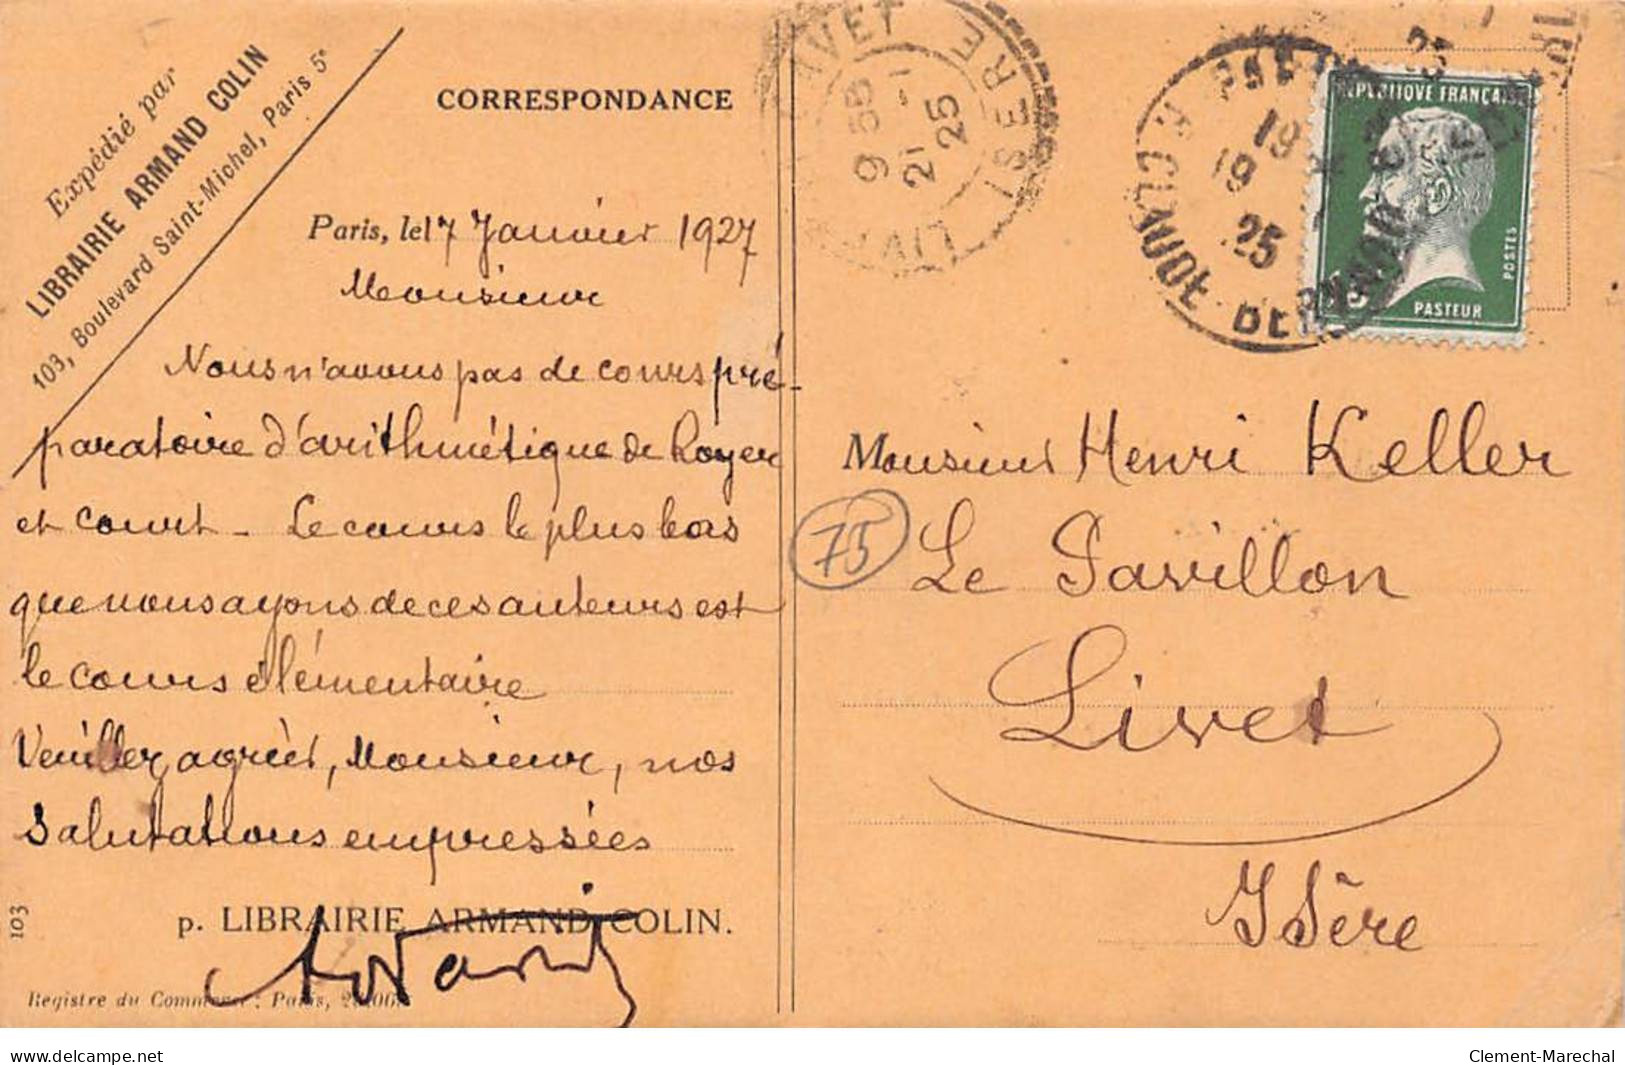 Expédié par
LIBRAIRIE ARMAND COLIN
103, Boulevard Saint-Michel, Paris 5e
CORRESPONDANCE
Paris, le 17 Janvier 1927
Monsieur
Nous n'avons pas de cours pré-
paratoire d'arithmétique de Royer
et Court - Le cours le plus bas
que nous ayons de ces auteurs est
le cours élémentaire
Veuillez agréer, Monsieur, nos
Salutations empressées
p. LIBRAIRIE ARMAND COLIN.
103
Registre du Commerce : Paris,
LIVET
9 35
21 -1
25
ISERE
19
19
25
R. CLAUDE BERNARD
RÉPUBLIQUE FRANÇAISE
POSTES
PASTEUR
Monsieur Henri Keller
75
Le Pavillon
Livet
Isère
www.delcampe.net
Clement-Marechal